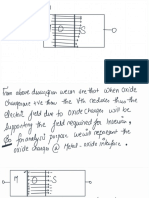 M O S
From above discussion we can see that when oxide
charges are +ve then the Vth reduces thus the
electric field due to oxide charges will be
supporting the field required for inversion.
So for analysis purpose we will represent the
oxide charges @ Metal-oxide interface.
M O S